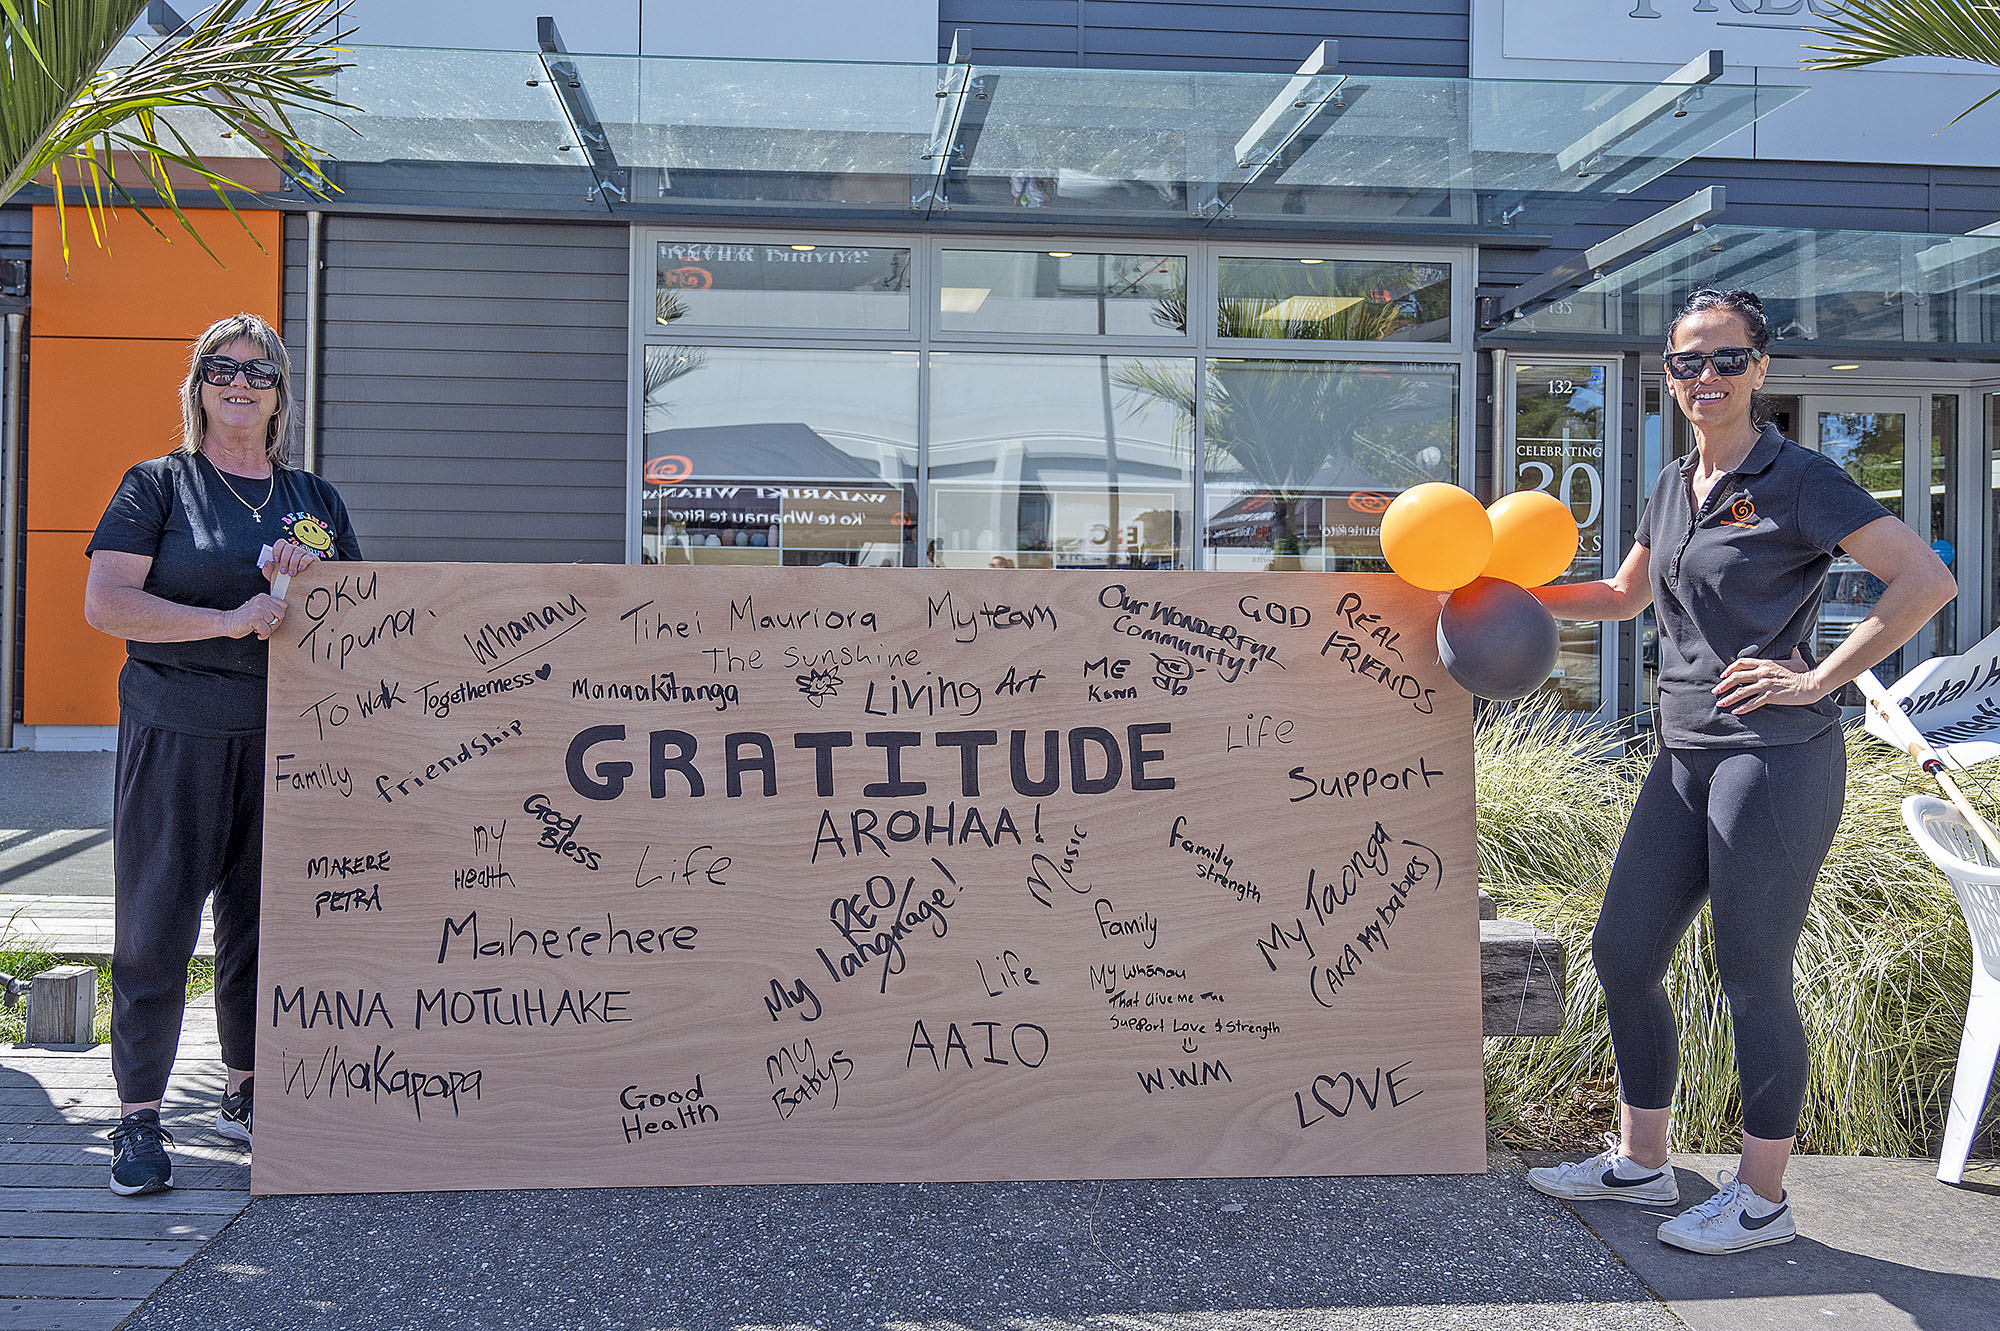 PRES
WAIARIKI WHANAU
132
132
CELEBRATING
30
WAIARIKI WHANAU
'Ko te Whanau te Rito'
BE KIND
OKU
Tipuna.
Whanau
Tihei Mauriora
My team
Our WONDERFUL
Community!
GOD
REAL
FRIENDS
The Sunshine
To Walk
Togetherness
Manaakitanga
Living Art
ME
KANA
Family
friendship
GRATITUDE
Life
Support
AROHAA!
God
Bless
My
Health
Life
MAKERE
PETRA
Music
Family
Strength
My Taonga
(AKA My babies)
REO/
My language!
Maherehere
family
Life
My Whānau
That Give Me The
Support Love & Strength
W.W.M
MANA MOTUHAKE
AAIO
Whakapapa
Good
Health
My
Babys
LOVE
ental H